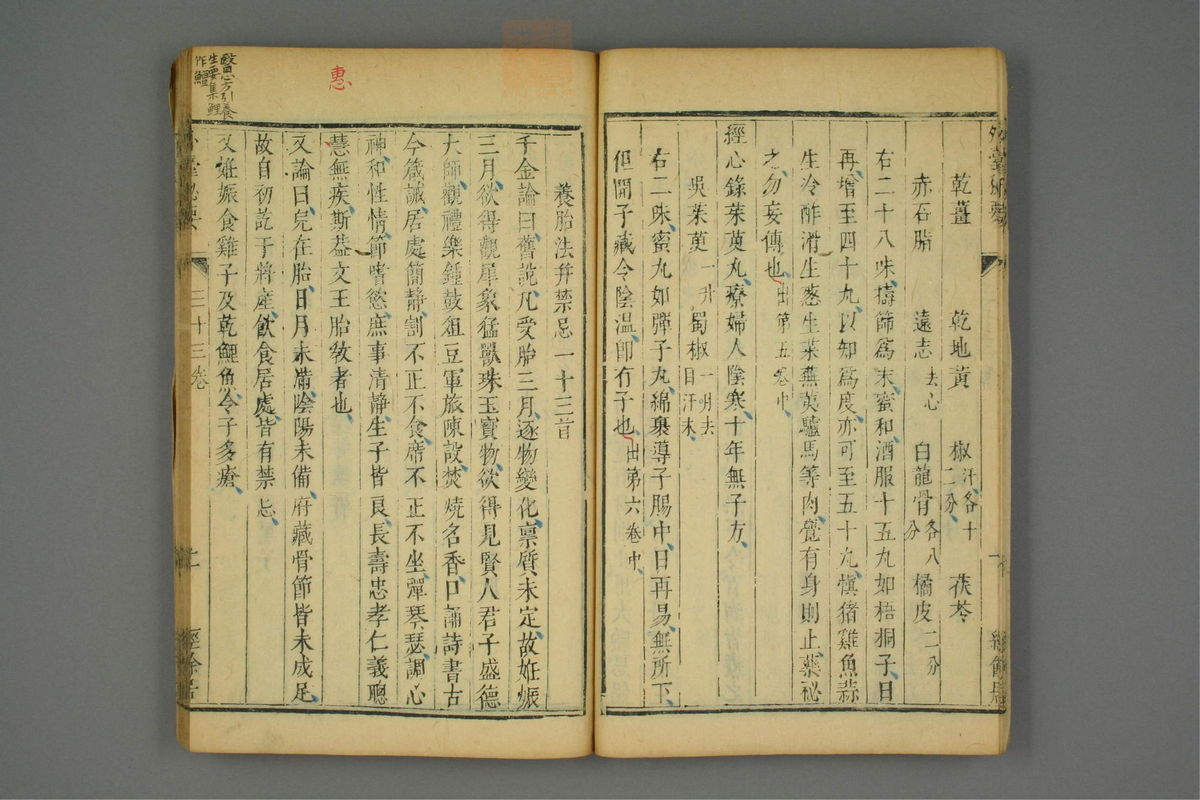 乾薑 乾地黃 椒汗各十二分 茯苓
赤石脂 遠志去心 白龍骨各八分 橘皮二分
右二十八味擣篩爲末蜜和酒服十五丸如梧桐子日
再增至四十丸以知爲度亦可至五十丸愼猪雞魚蒜
生冷酢滑生葱生菜蕪荑驢馬等肉覺有身則止藥祕
之勿妄傳也出第五卷中
經心錄茱萸丸療婦人陰寒十年無子方
吳茱萸一升 蜀椒一升去目汗末
右二味蜜丸如彈子丸綿裹導子腸中日再易無所下
但開子藏令陰温卽有子也出第六卷中
養胎法并禁忌一十三首
千金論曰舊說凡受胎三月逐物變化禀質未定故妊娠
三月欲得觀犀象猛獸珠玉寶物欲得見賢人君子盛德
大師觀禮樂鍾鼓俎豆軍旅陳設焚燒名香口誦詩書古
今箴誡居處簡靜割不正不食席不正不坐彈琴瑟調心
神和性情節嗜慾庶事清靜生子皆良長壽忠孝仁義聰
慧無疾斯葢文王胎敎者也
又論曰兒在胎日月未滿陰陽未備府藏骨節皆未成足
故自初訖于將產飮食居處皆有禁忌
又妊娠食雞子及乾鯉魚令子多瘡
惠
醫心方引養
生要集鯉
作鱓
外臺祕要
三十三卷
經餘居